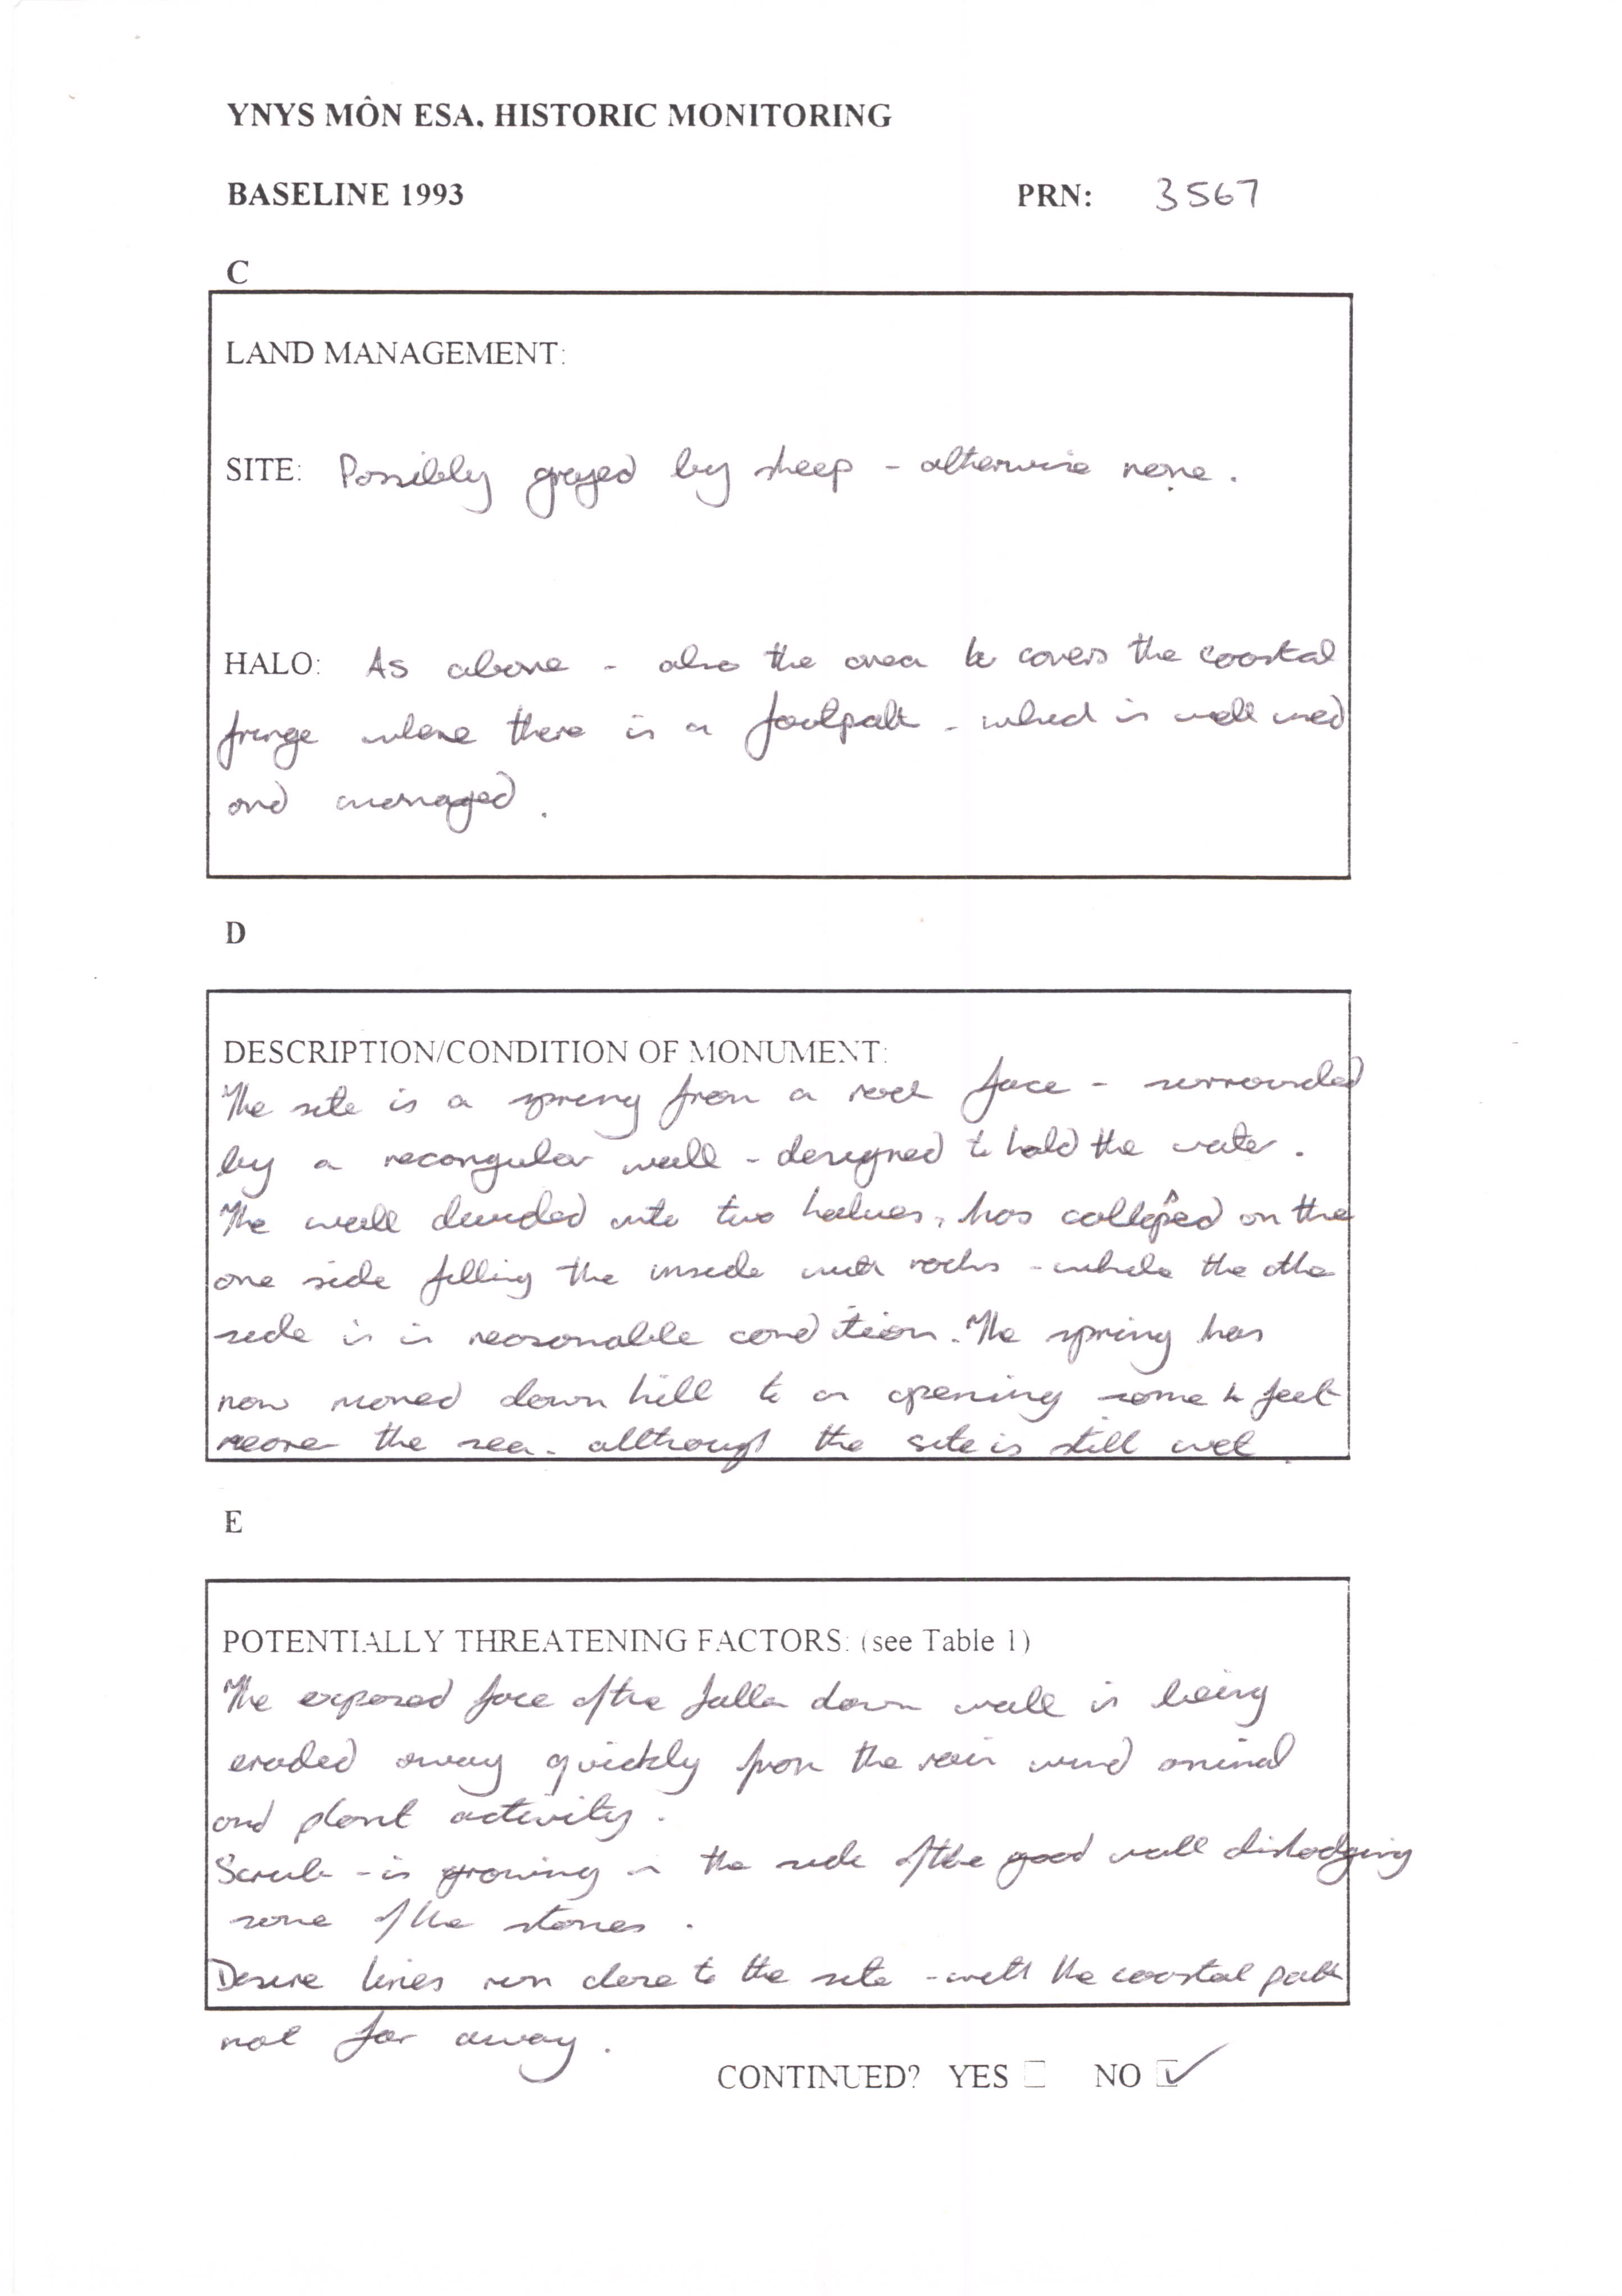 YNYS MÔN ESA. HISTORIC MONITORING
BASELINE 1993 PRN: 3567
C
LAND MANAGEMENT:
SITE: Possibly grazed by sheep - otherwise none.
HALO: As above - also the area covers the coastal
fringe where there is a footpath - which is well used
and managed.
D
DESCRIPTION/CONDITION OF MONUMENT:
The site is a spring from a rock face - surrounded
by a recongular wall - designed to hold the water.
The wall divided into two halves, has collapsed on the
one side filling the inside with rocks - while the other
side is in reasonable condition. The spring has
now moved down hill to an opening some 4 feet
nearer the sea - allthough the site is still wet
E
POTENTIALLY THREATENING FACTORS: (see Table 1)
The exposed face of the fallen down wall is being
eroded away quickly from the rain wind animal
and plant activity.
Scrub - is growing in the side of the good wall dislodging
some of the stones.
Desire lines run close to the site - with the coastal path
not far away.
CONTINUED? YES ☐ NO ☑